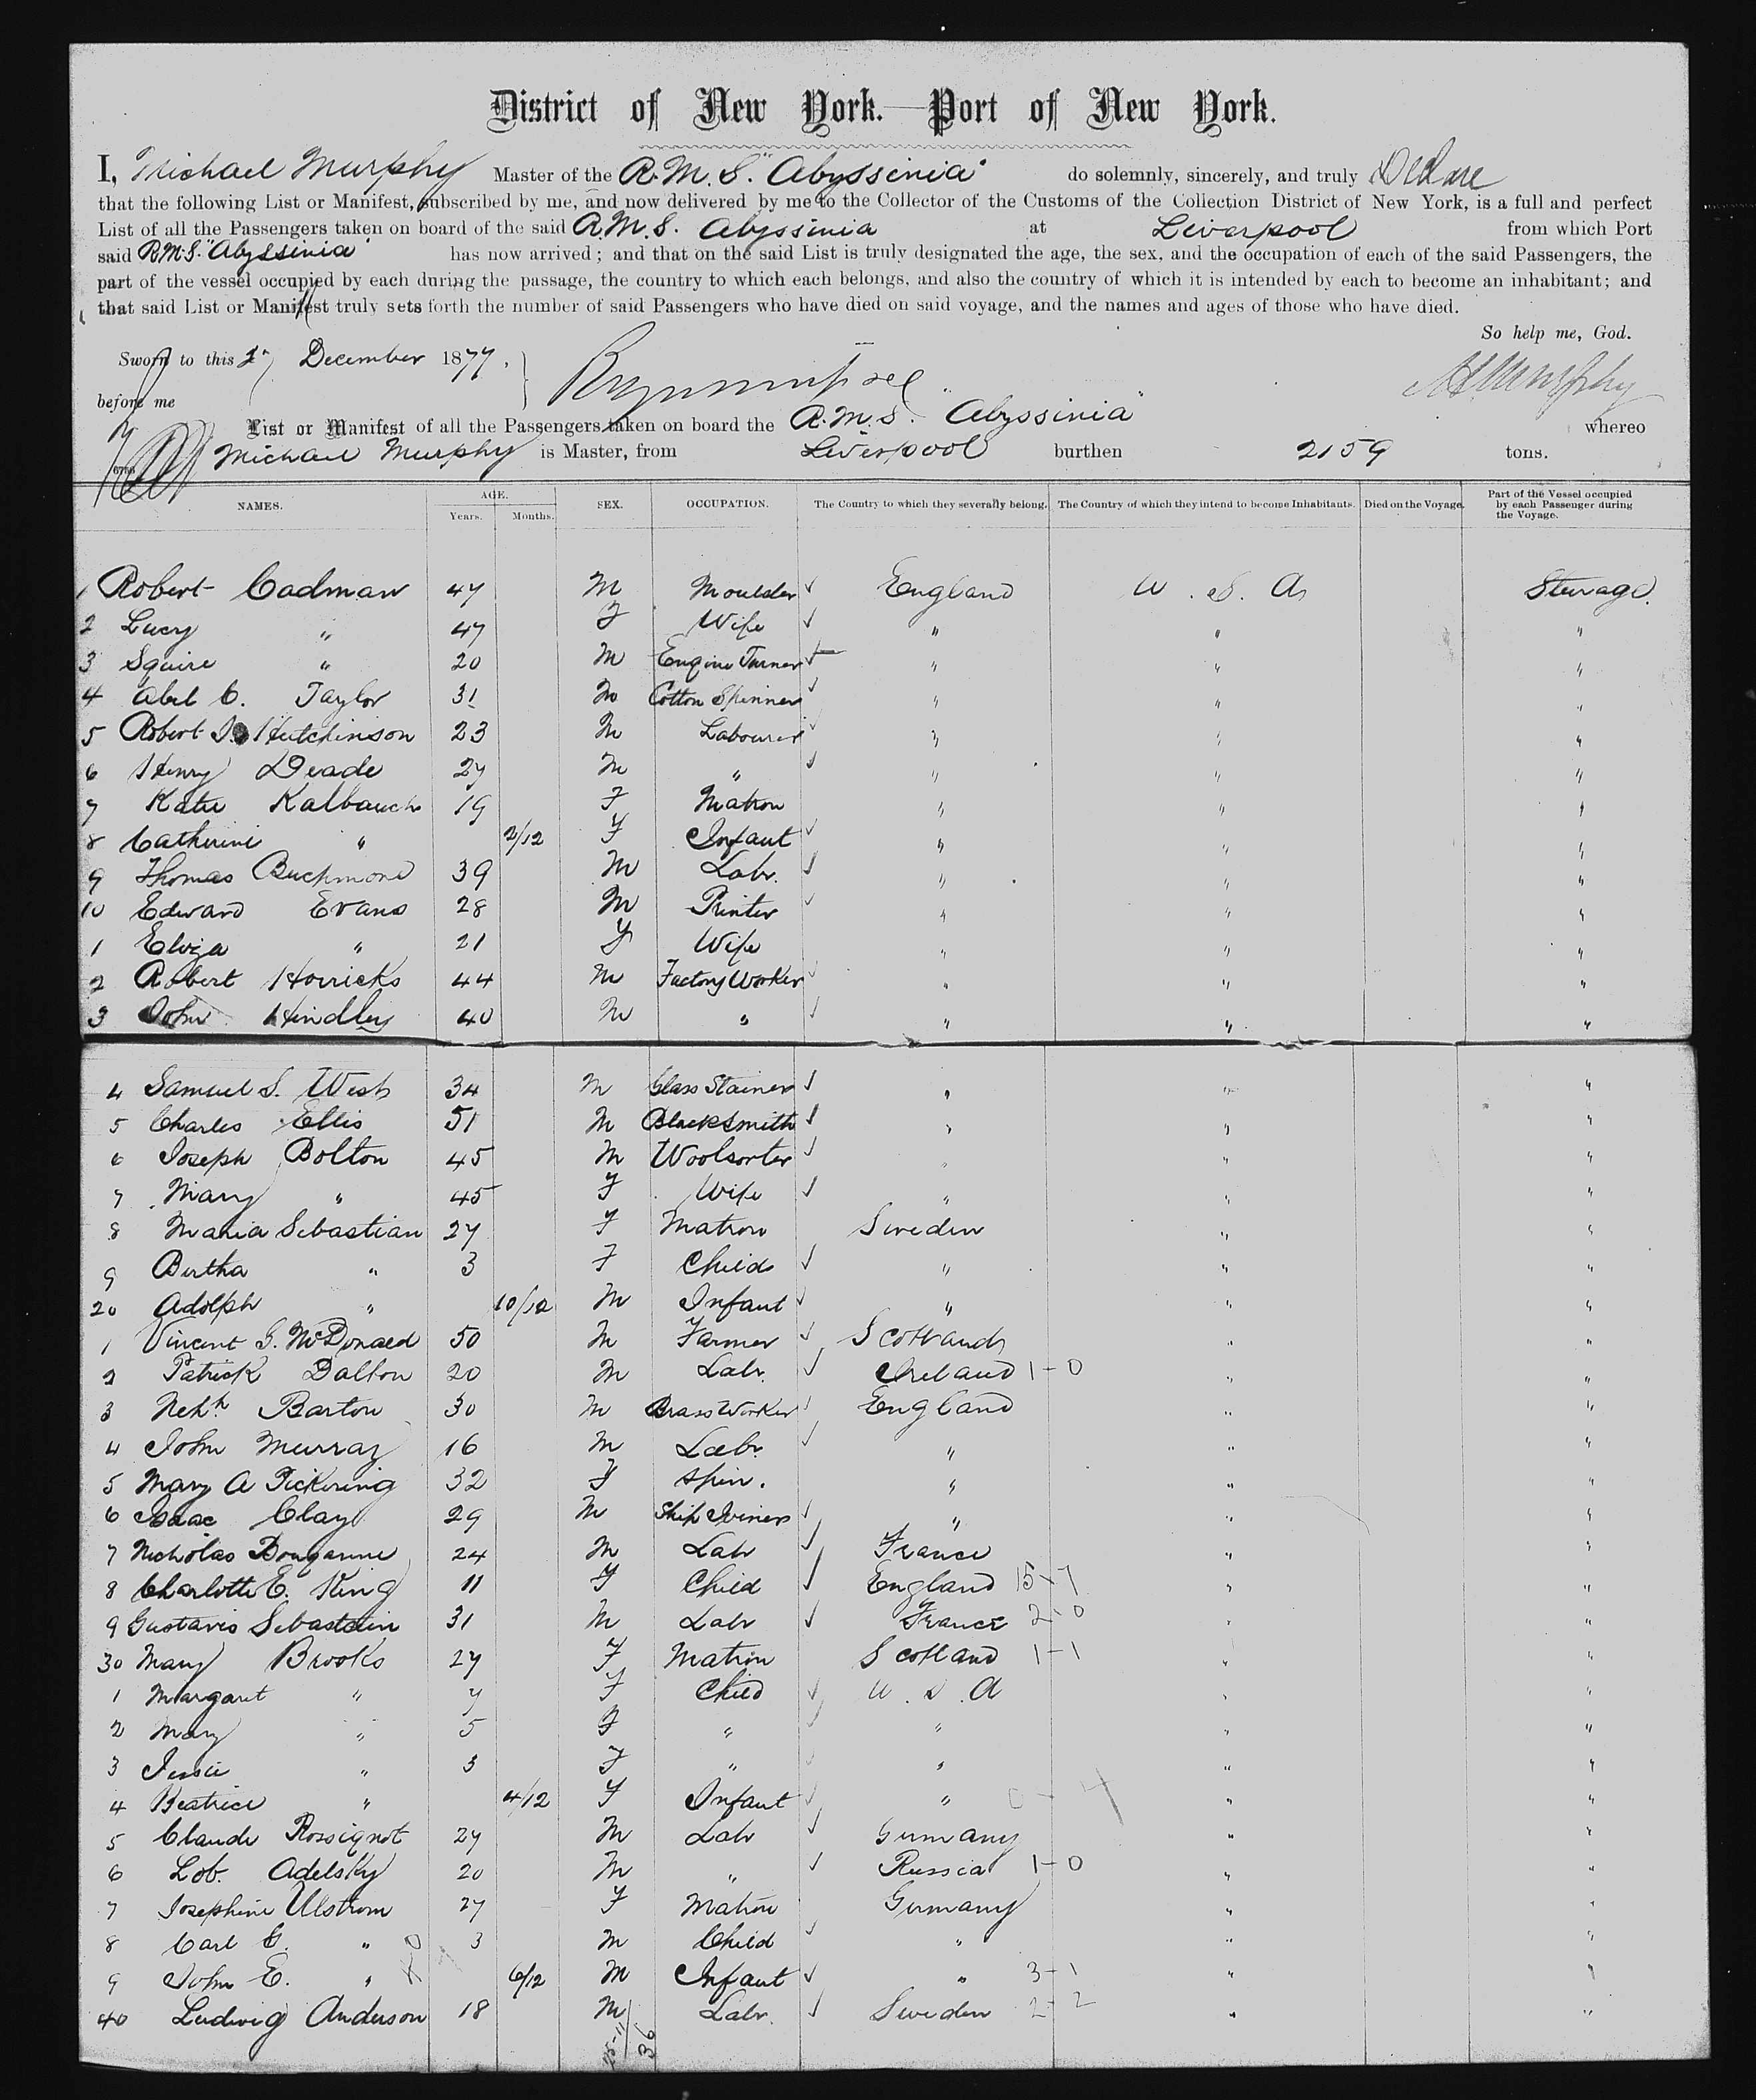 District of New York.—Port of New York.
I, Michael Murphy Master of the R.M.S. "Abyssinia" do solemnly, sincerely, and truly Declare
that the following List or Manifest, subscribed by me, and now delivered by me to the Collector of the Customs of the Collection District of New York, is a full and perfect
List of all the Passengers taken on board of the said R.M.S. Abyssinia at Liverpool from which Port
said R.M.S. "Abyssinia" has now arrived; and that on the said List is truly designated the age, the sex, and the occupation of each of the said Passengers, the
part of the vessel occupied by each during the passage, the country to which each belongs, and also the country of which it is intended by each to become an inhabitant; and
that said List or Manifest truly sets forth the number of said Passengers who have died on said voyage, and the names and ages of those who have died.
So help me, God.
Sworn to this December 1877. Murphy
before me
List or Manifest of all the Passengers taken on board the R.M.S. "Abyssinia" whereo
Michael Murphy is Master, from Liverpool burthen 2159 tons.
NAMES. AGE. Years. Months. SEX. OCCUPATION. The Country to which they severally belong. The Country of which they intend to become Inhabitants. Died on the Voyage. Part of the Vessel occupied by each Passenger during the Voyage.
1 Robert Cadman 47 M Moulder England U.S.A. Steerage.
2 Lucy " 47 F Wife " " "
3 Squire " 20 M Engine Turner " " "
4 Abel C. Taylor 31 M Cotton Spinner " " "
5 Robert Hutchinson 23 M Labourer " " "
6 Henry Deade 27 M " " " "
7 Katie Kalbauch 19 F Matron " " "
8 Catherine " 2/12 F Infant " " "
9 Thomas Buckmore 39 M Labr. " " "
10 Edward Evans 28 M Printer " " "
1 Eliza " 21 F Wife " " "
2 Robert Horricks 44 M Factory Worker " " "
3 John Hindley 40 M " " " "
4 Samuel S. West 34 M Glass Stainer " " "
5 Charles Ellis 51 M Blacksmith " " "
6 Joseph Bolton 45 M Woolsorter " " "
7 Mary " 45 F Wife " " "
8 Maria Sebastian 27 F Matron Sweden " "
9 Bertha " 3 F Child " " "
20 Adolph " 10/12 M Infant " " "
1 Vincent G. McDonald 50 M Farmer Scotland " "
2 Patrick Dalton 20 M Labr. Ireland 1-0 " "
3 Nehh. Barton 30 M Brass Worker England " "
4 John Murray 16 M Labr. " " "
5 Mary A Pickering 32 F Spin. " " "
6 Isaac Clay 29 M Ship Joiner " " "
7 Nicholas 24 M Labr France " "
8 Charlotte E. King 11 F Child England 15-7 " "
9 Gustavis Sebastain 31 M Labr France 2-0 " "
30 Mary Brooks 27 F Matron Scotland 1-1 " "
1 Margaret " 7 F Child U.S.A " "
2 Mary " 5 F " " " "
3 Jessie " 3 F " " " "
4 Beatrice " 4/12 F Infant " 0-4 " "
5 Claude Rossignot 27 M Labr Germany " "
6 Lob. Adelsky 20 M " Russia 1-0 " "
7 Josephine Ulstrom 27 F Matron Germany " "
8 Carl G. " 3 M Child " " "
9 John E. " 6/12 M Infant " 3-1 " "
40 Ludwig Anderson 18 M Labr. Sweden 2-2 " "
25-11
36